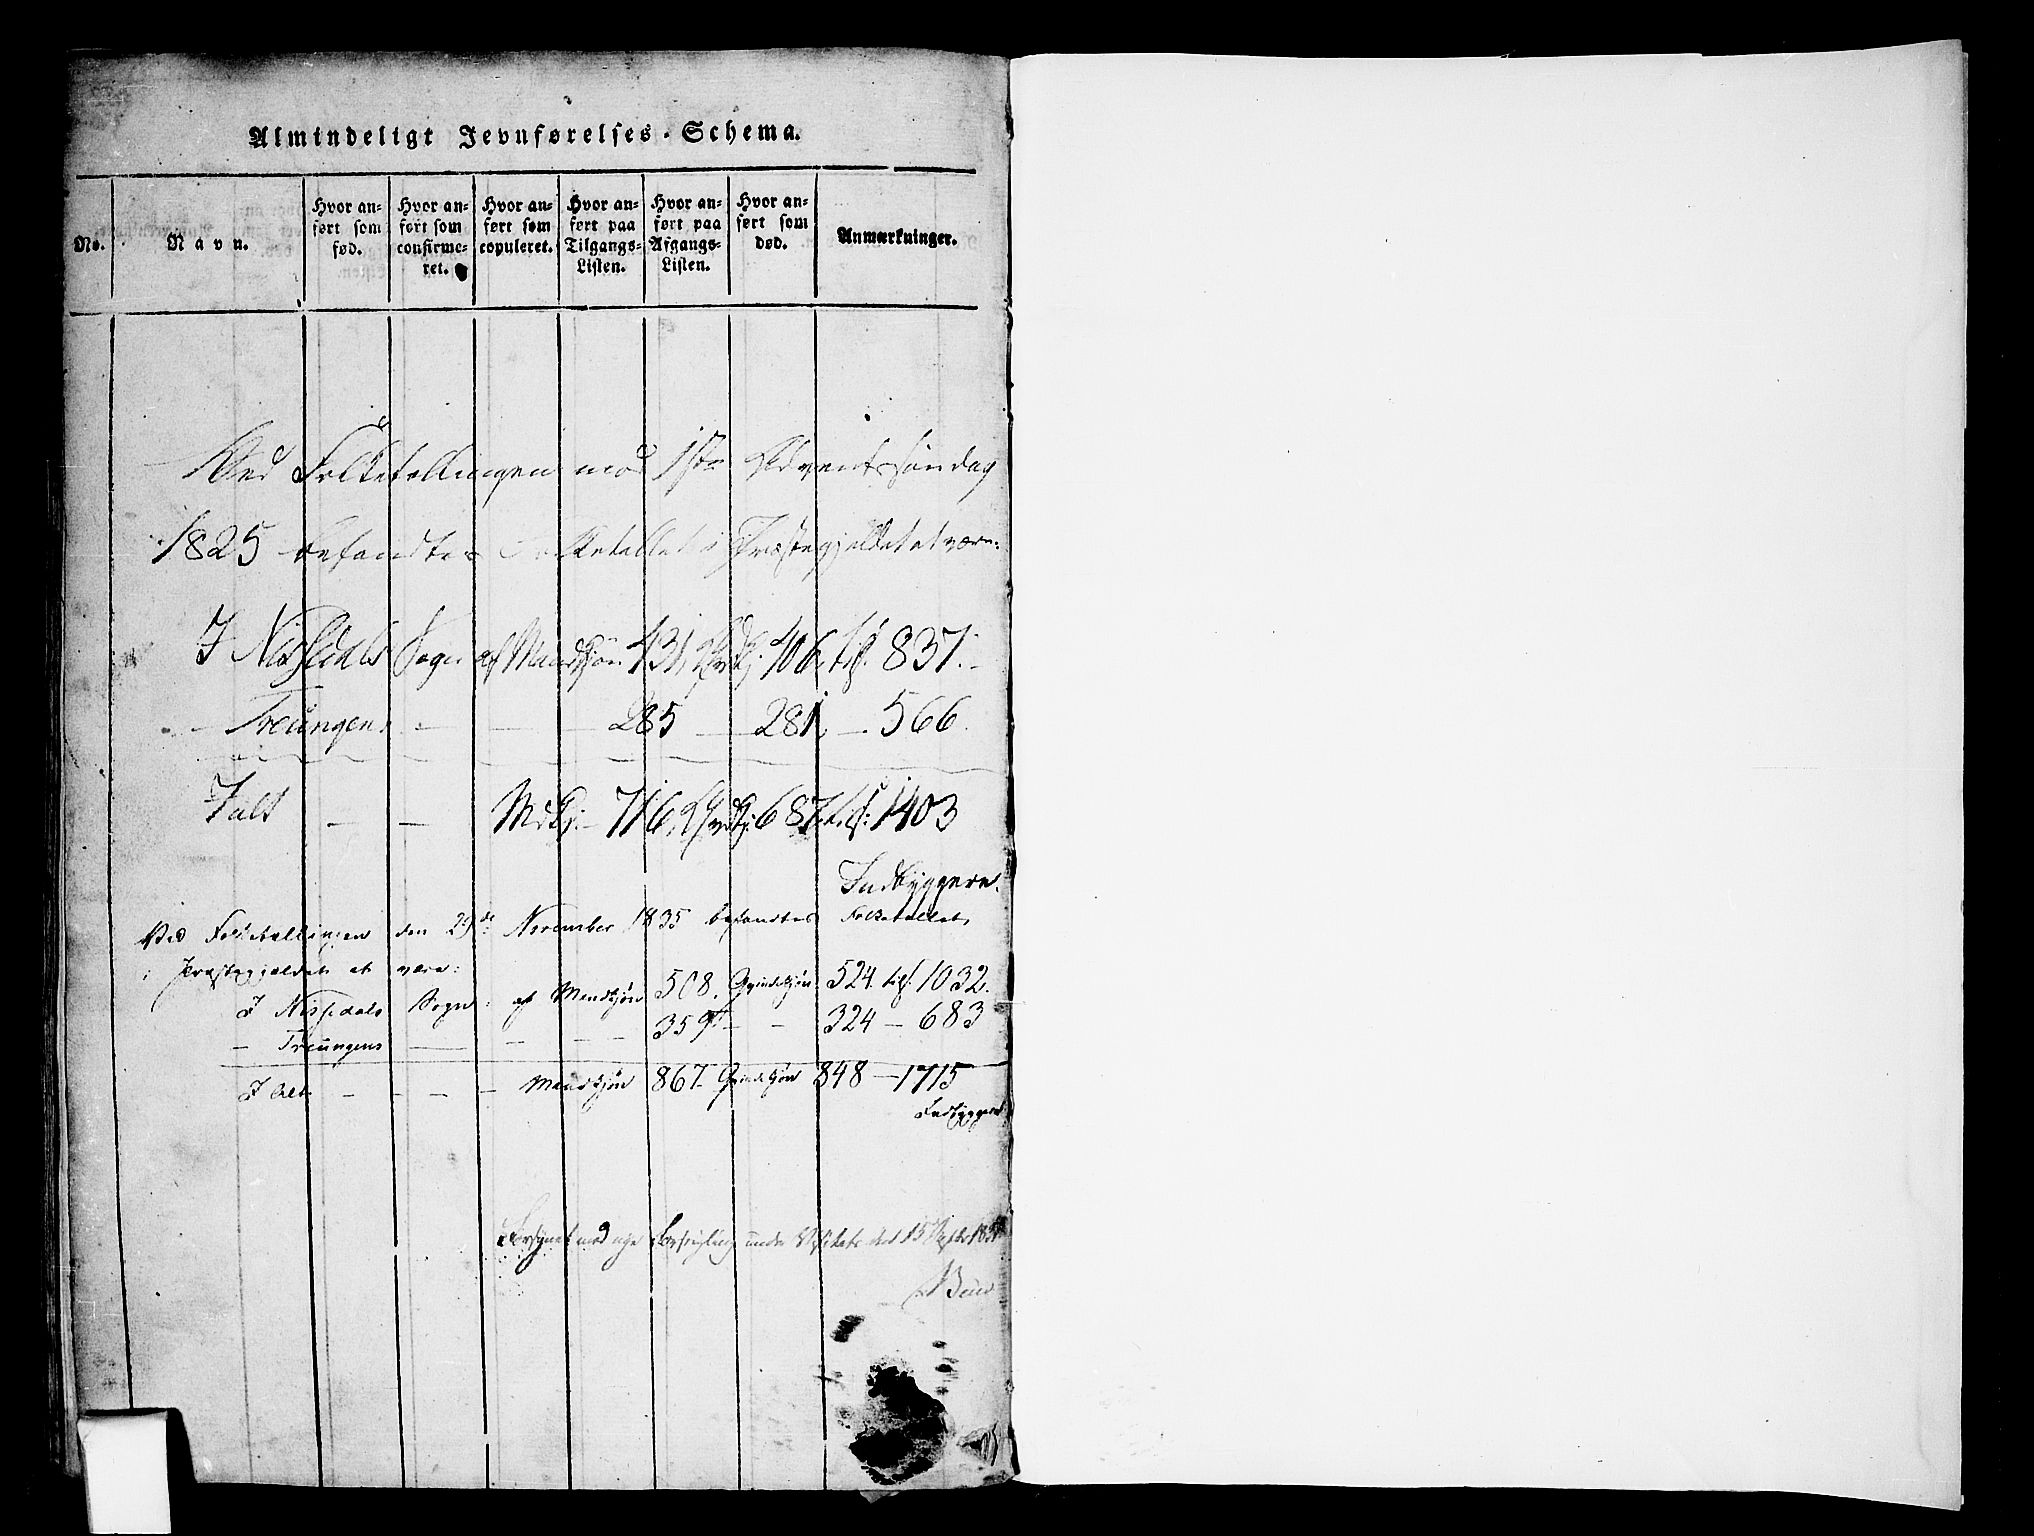 Almindeligt Jevnførelses-Schema.
No.
Navn.
Hvor an-
ført som
fød.
Hvor an-
ført som
confirme-
ret.
Hvor an-
ført som
copuleret.
Hvor an-
ført paa
Tilgangs-
Listen.
Hvor an-
ført paa
Afgangs-
Listen.
Hvor an-
ført som
død.
Anmærkninger.
Ved Folketellingen mod 1ste Advents Søndag
1825 befandtes Folketallet i Præstegjeldet at være:
I Nissedals Sogn af Mandkjøn 431, Qvdkj. 406, tils. 837.
— Treungens — — — 285 — 281, — 566.
I alt — — Mdkj: — 716, Qvdkj: 687, tils: 1403
Indbyggere.
Ved Folketellingen den 29de November 1835 befandtes Folketallet
i Præstegjeldet at være:
I Nissedals Sogn: af Mandkjøn 508. Qvindekjøn 524. tils. 1032.
— Treungens — — — — 359 — — 324 — 683
I Alt — — — — Mandkjøn 867. Qvindekjøn 848 — 1715
Indbyggere
under Visitats den 15